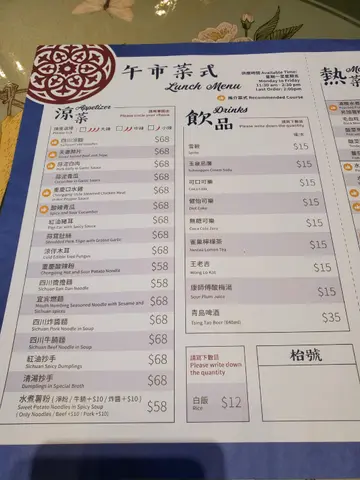 午市菜式
Lunch Menu
供應時間 Available Time:
星期一至星期五
Monday to Friday
11:30 am - 2:30 pm
Last Order: 2:00pm
推介菜式 Recommended Course
涼菜
Appetizer
請用筆圈出
Please circle your choices
大辣
中辣
小辣
四川涼粉 $68
夫妻肺片 $68
蒜泥白肉 $68
蒜泥青瓜 $68
重慶口水雞 $68
酸辣青瓜 $68
Spicy and Sour Cucumber
紅油豬耳 $68
Pig's Ear with Spicy Sauce
蒜茸肚絲 $68
涼伴木耳 $68
Cold Edible Tree Fungus
重慶酸辣粉 $58
Chongqing Hot and Sour Potato Noodle
四川擔擔麵 $58
Sichuan Dan Dan Noodle
宜宾燃麵 $68
Mouth-Numbing Seasoned Noodle with Sesame and
Sichuan spices
四川炸醬麵 $68
Sichuan Pork Noodle in Soup
四川牛腩麵 $68
Sichuan Beef Noodle in Soup
紅油抄手 $68
Sichuan Spicy Dumplings
清湯抄手 $68
Dumplings in Special Broth
水煮薯粉 ( 淨粉 / 牛腩+$10 / 炸醬+$10 ) $58
Sweet Potato Noodles in Spicy Soup
( Only Noodles / Beef +$10 / Pork +$10)
飲品
Drinks
請寫下數目
Please write down the quantity
雪碧 $15
Sprite
玉泉忌廉 $15
Schweppes Cream Soda
可口可樂 $15
Coca Cola
健怡可樂 $15
Diet Coke
無糖可樂 $15
Coca Cola Zero
雀巢檸檬茶 $15
Nestea Lemon Tea
王老吉 $15
Wong Lo Kat
康師傅酸梅湯 $15
Sour Plum Juice
青島啤酒 $35
Tsing Tao Beer (640ml)
請寫下數目
Please write down
the quantity
白飯 $12
Rice
枱號
熱菜